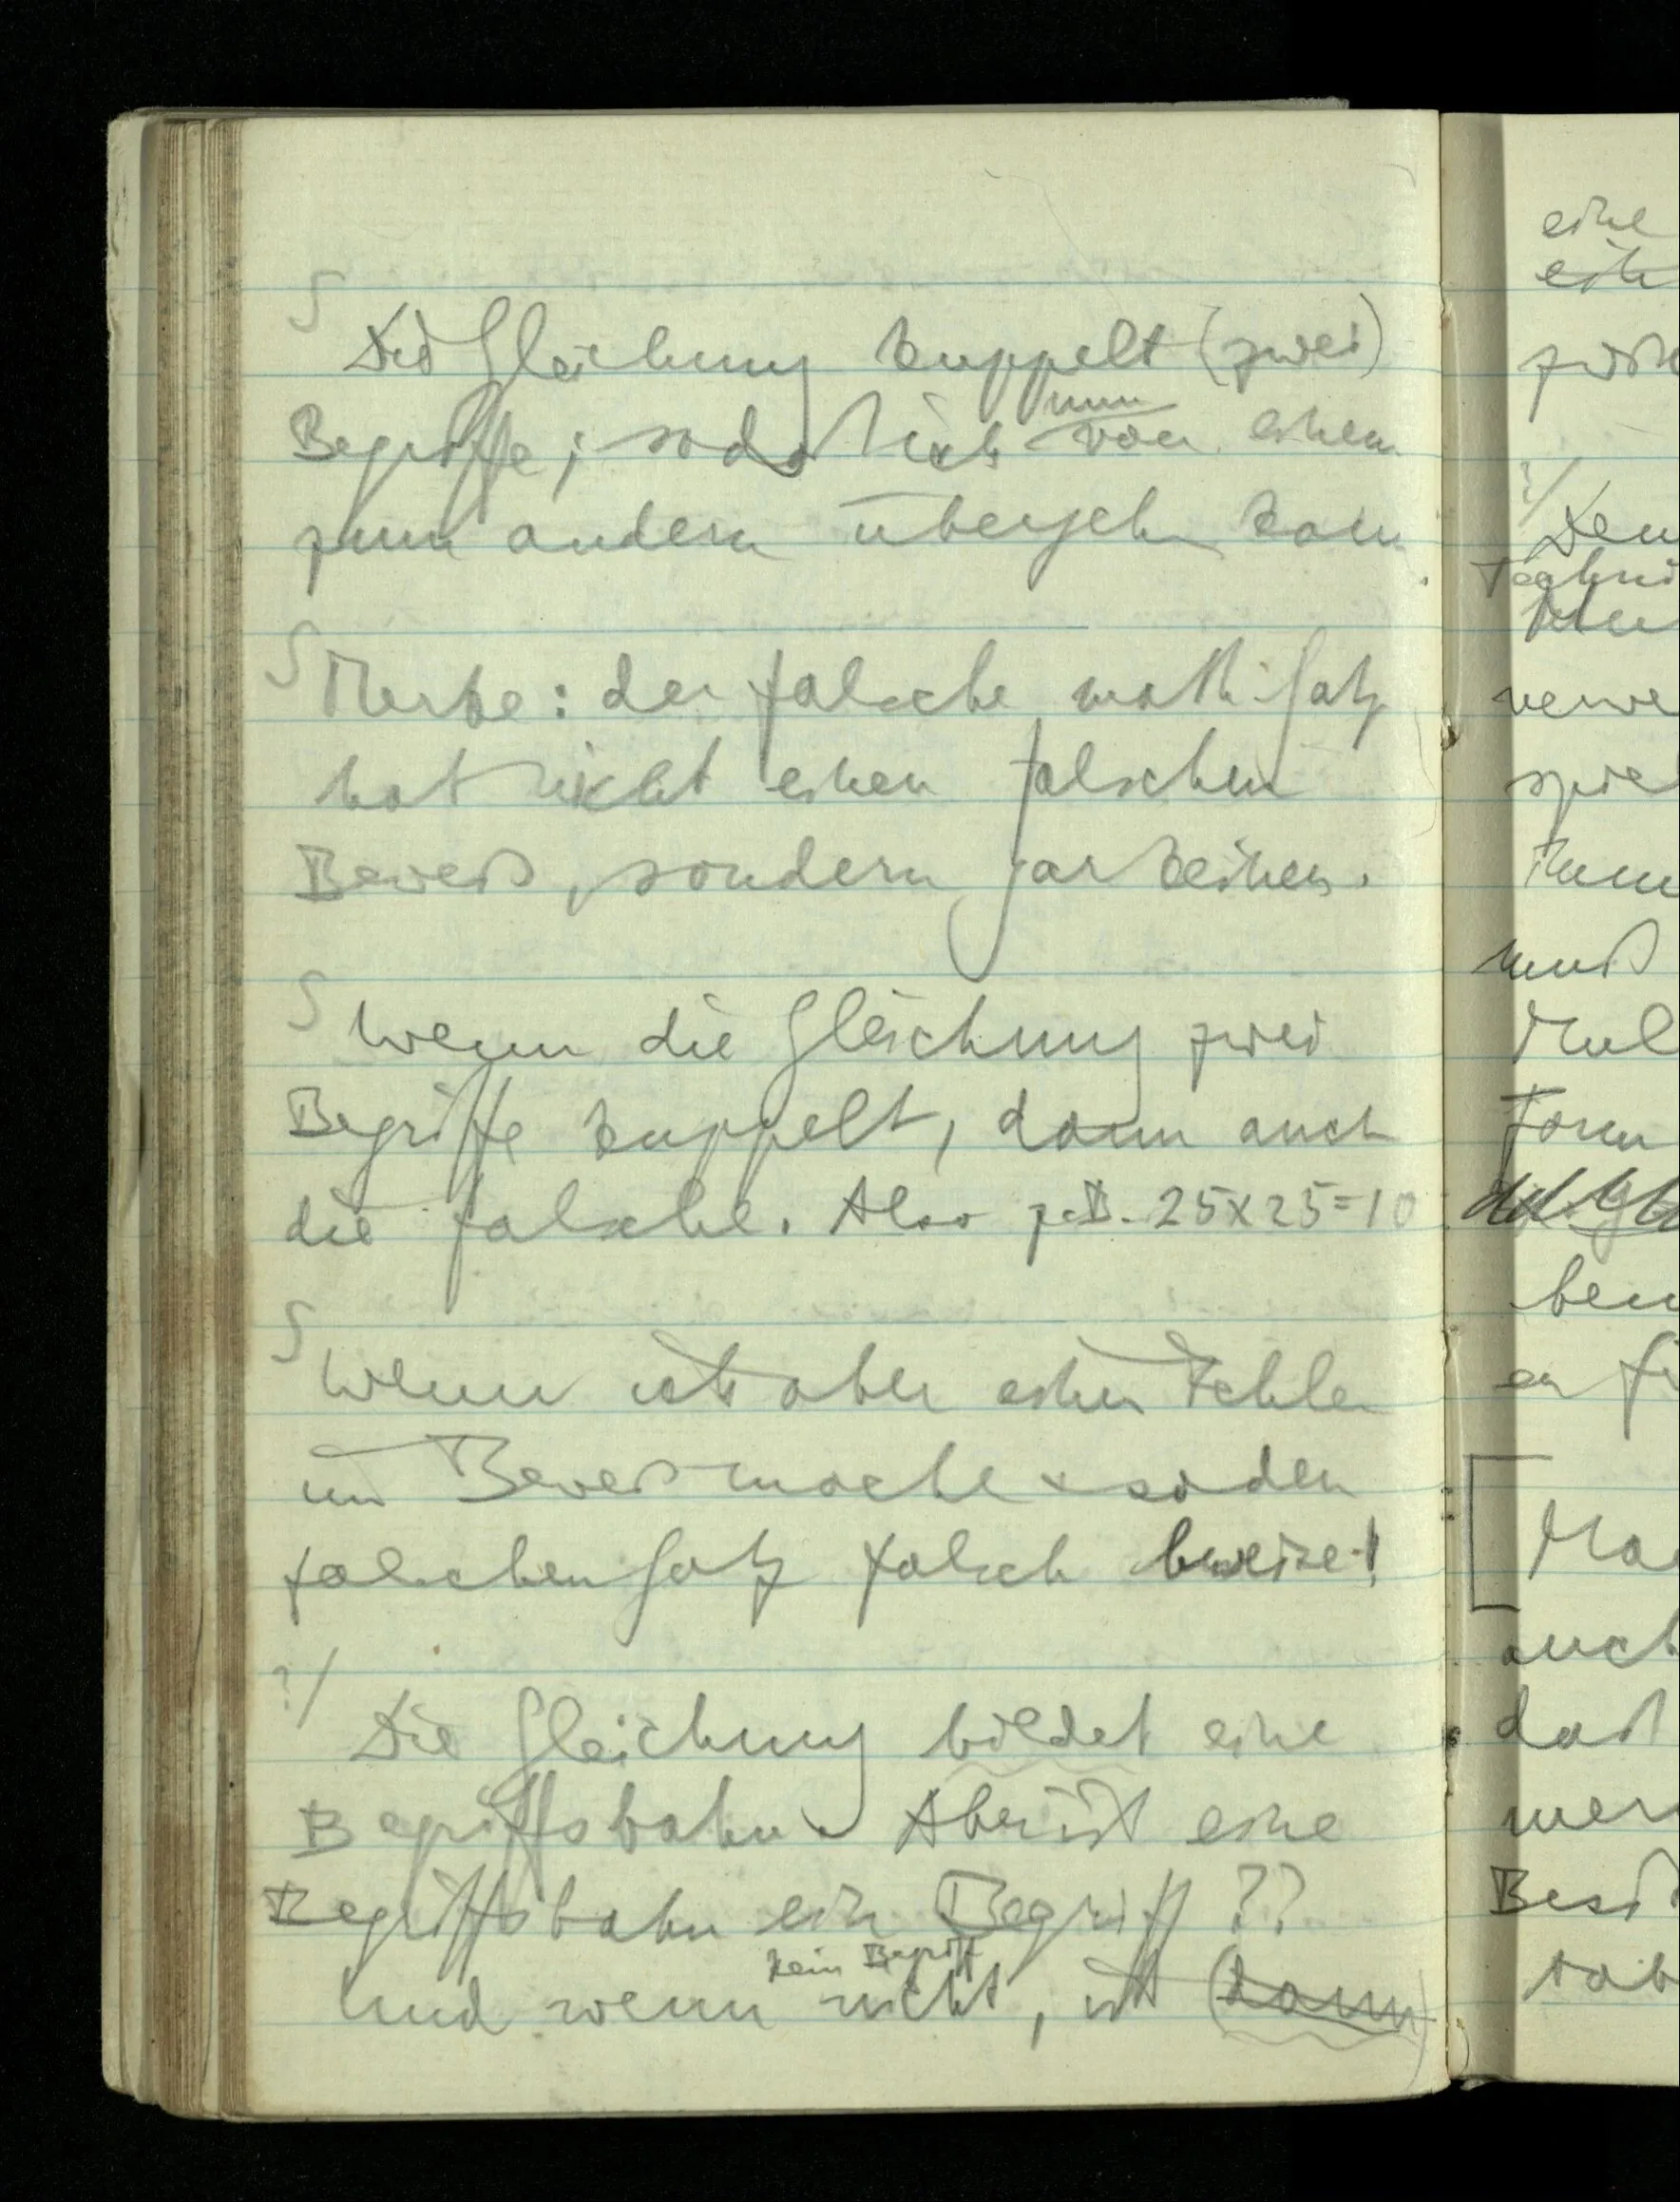 S
Die Gleichung kuppelt (zwei)
nun
Begriffe; sodaß ich von einem
zum andern übergehn kann.
S Merke: der falsche math. Satz
hat nicht einen falschen
Beweis, sondern gar keinen.
S
Wenn die Gleichung zwei
Begriffe kuppelt, dann auch
die falsche. Also z.B. 25x25=10
S
Wenn ich aber einen Fehler
im Beweis mache & so den
falschen Satz falsch beweise!
?/
Die Gleichung bildet eine
Begriffsbahn. Aber ist eine
Begriffsbahn ein Begriff??
kein Begriff
Und wenn nicht, ist (dann)
eine
ein
?/
Den
Techni
verwe
spie
muß
Form
auch
daß